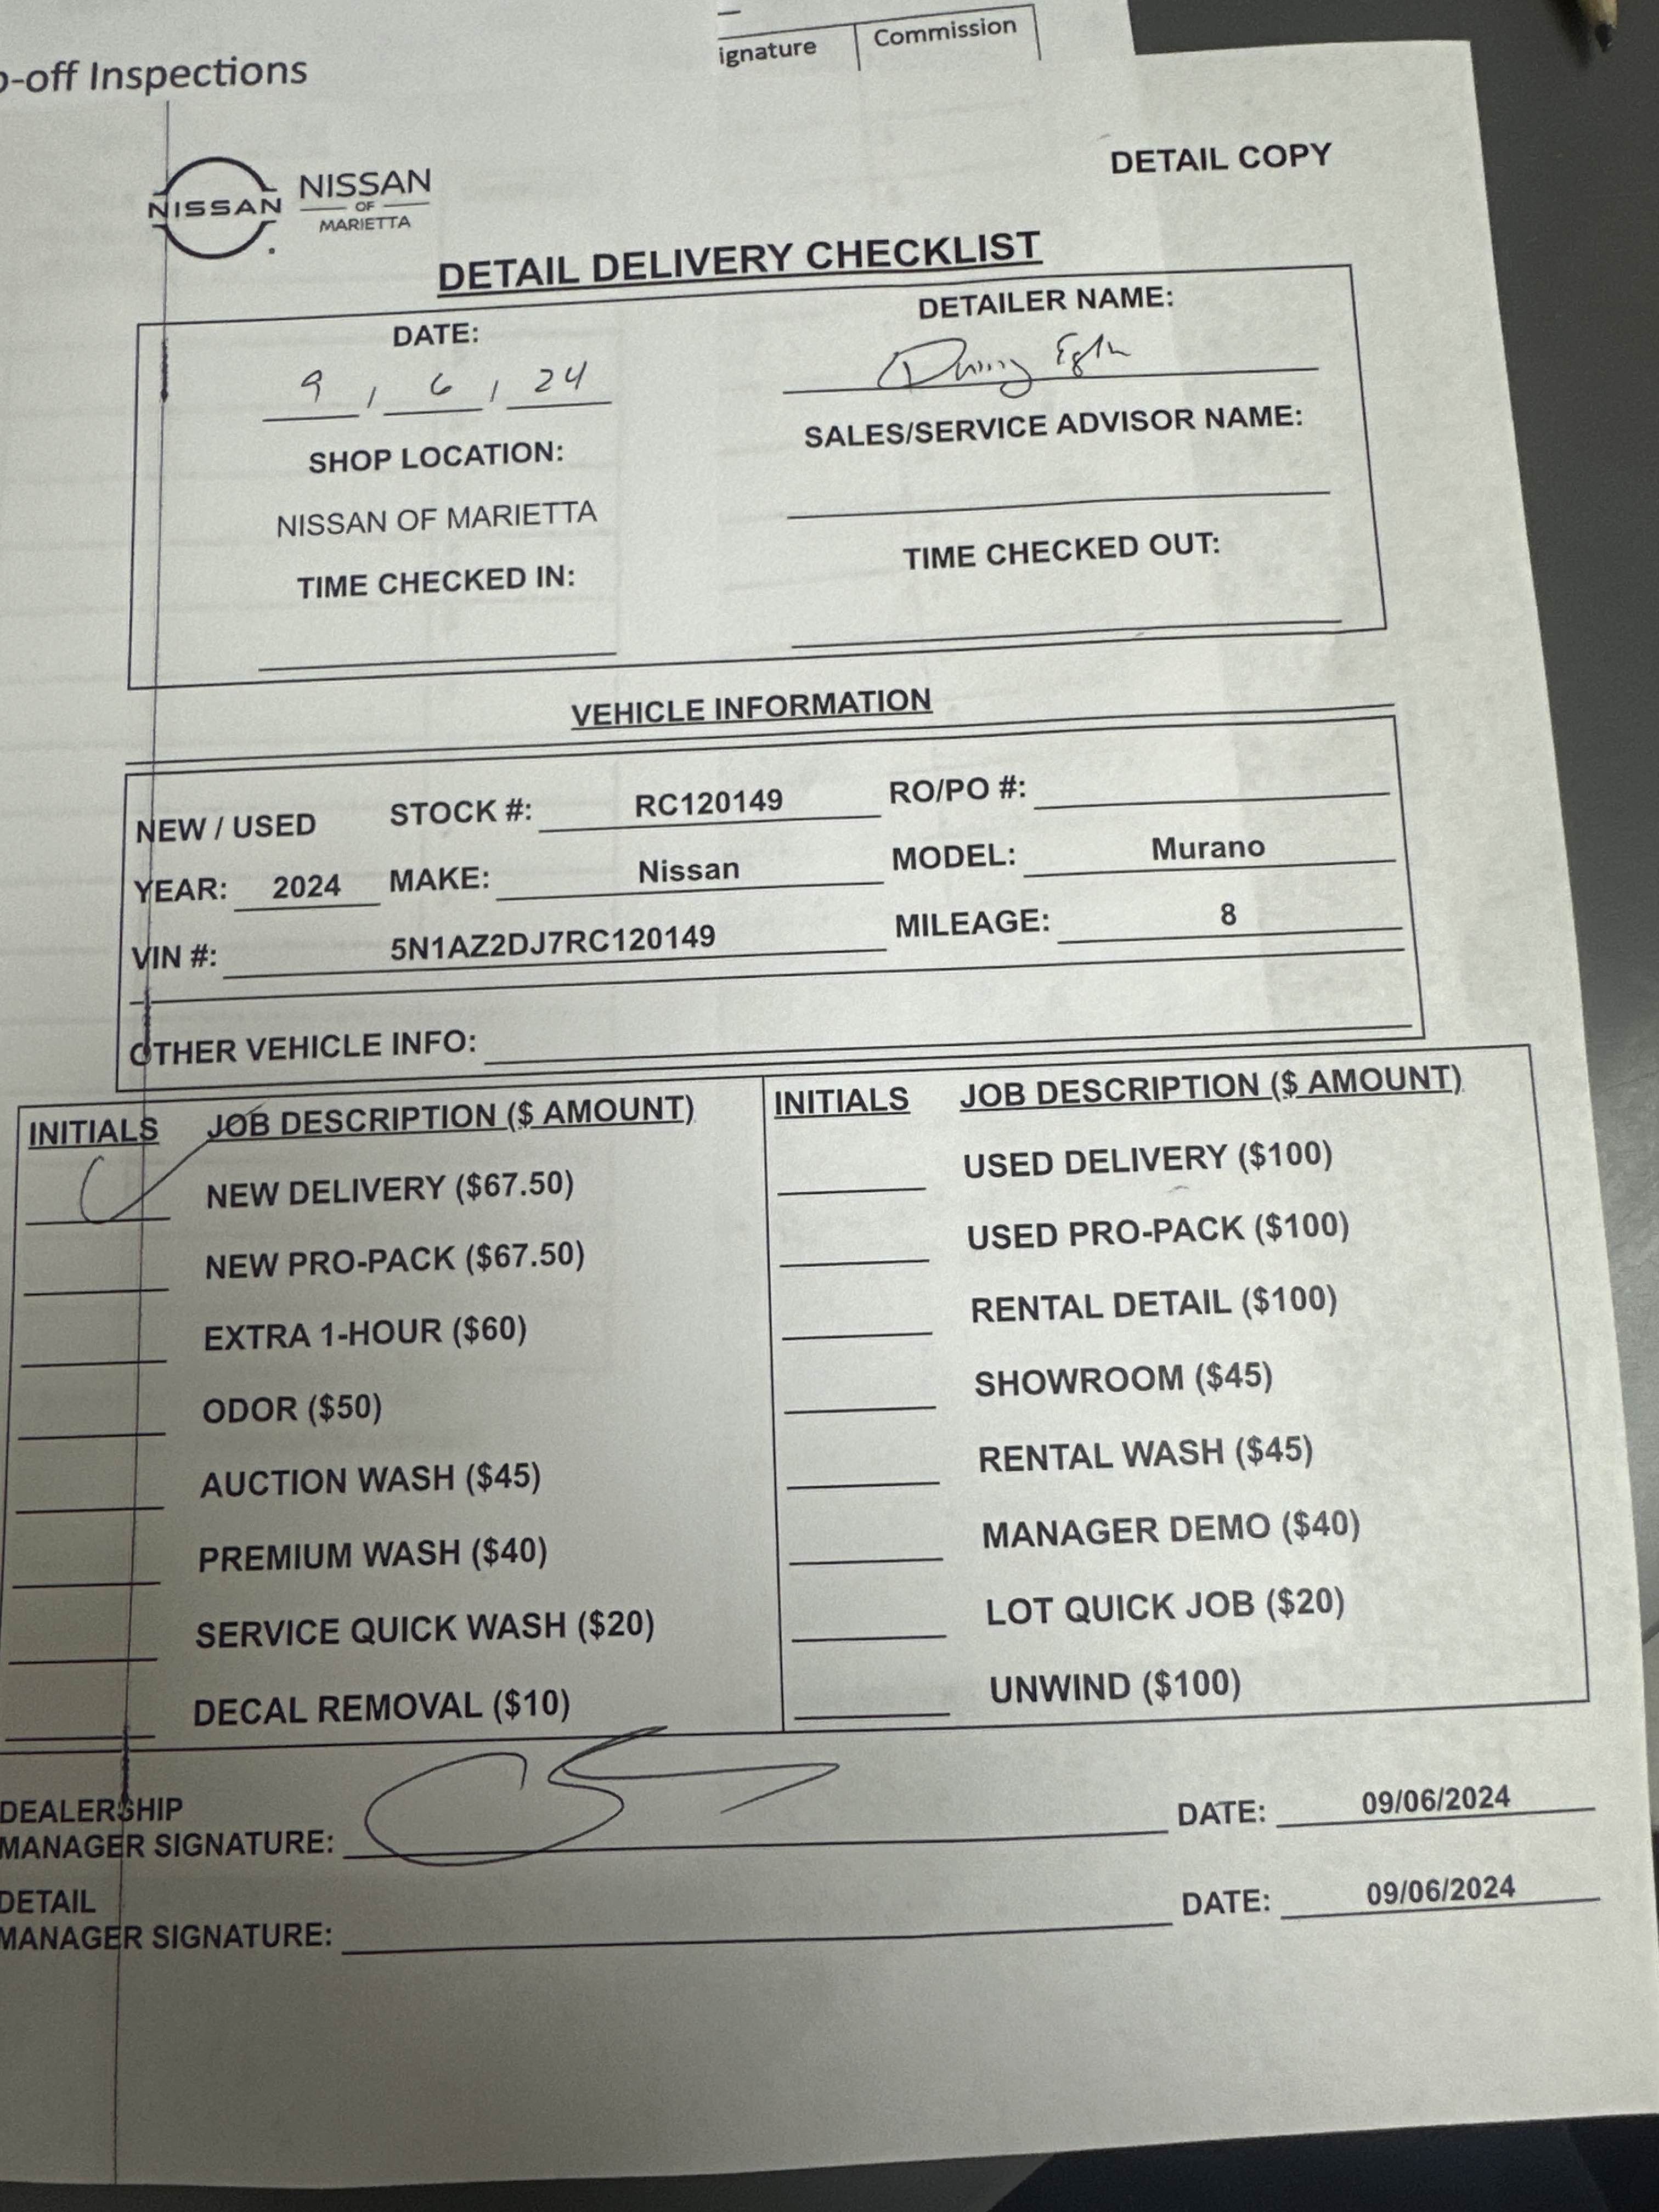 ignature Commission
-off Inspections
DETAIL COPY
NISSAN
NISSAN
OF
MARIETTA
DETAIL DELIVERY CHECKLIST
DATE:
DETAILER NAME:
9 / 6 / 24
SHOP LOCATION:
SALES/SERVICE ADVISOR NAME:
NISSAN OF MARIETTA
TIME CHECKED IN:
TIME CHECKED OUT:
VEHICLE INFORMATION
NEW / USED STOCK #: RC120149 RO/PO #:
YEAR: 2024 MAKE: Nissan MODEL: Murano
VIN #: 5N1AZ2DJ7RC120149 MILEAGE: 8
OTHER VEHICLE INFO:
INITIALS JOB DESCRIPTION ($ AMOUNT) INITIALS JOB DESCRIPTION ($ AMOUNT)
NEW DELIVERY ($67.50) USED DELIVERY ($100)
NEW PRO-PACK ($67.50) USED PRO-PACK ($100)
EXTRA 1-HOUR ($60) RENTAL DETAIL ($100)
ODOR ($50) SHOWROOM ($45)
AUCTION WASH ($45) RENTAL WASH ($45)
PREMIUM WASH ($40) MANAGER DEMO ($40)
SERVICE QUICK WASH ($20) LOT QUICK JOB ($20)
DECAL REMOVAL ($10) UNWIND ($100)
DEALERSHIP
MANAGER SIGNATURE: DATE: 09/06/2024
DETAIL
MANAGER SIGNATURE: DATE: 09/06/2024